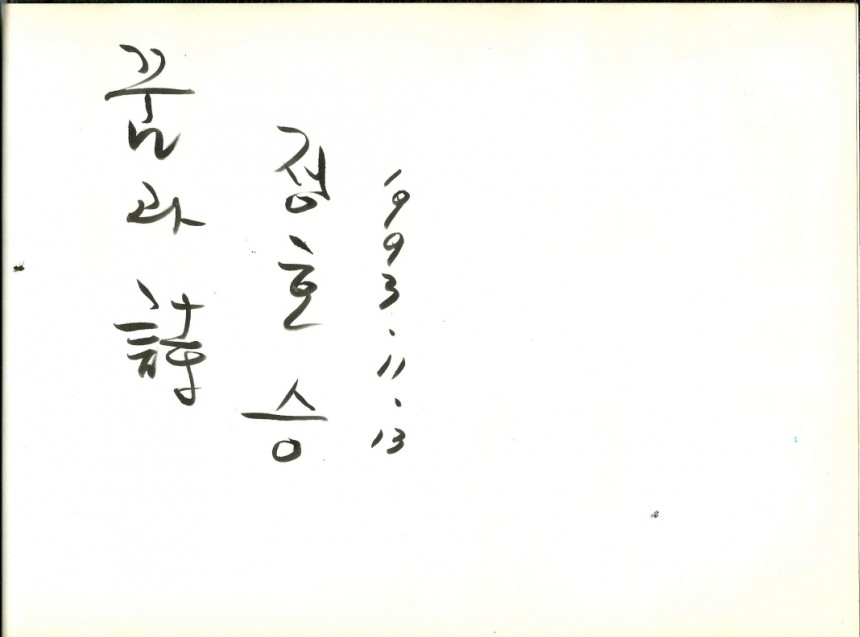 꿈과 詩
정호승
1993.11.13